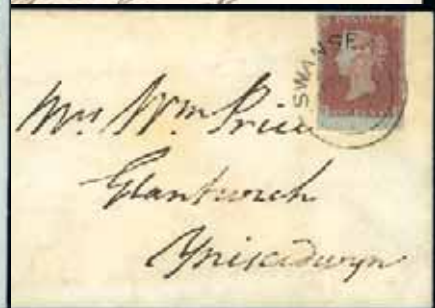 SWANSEA
Mrs Wm Price
Glantwrch
Yniscedwyn